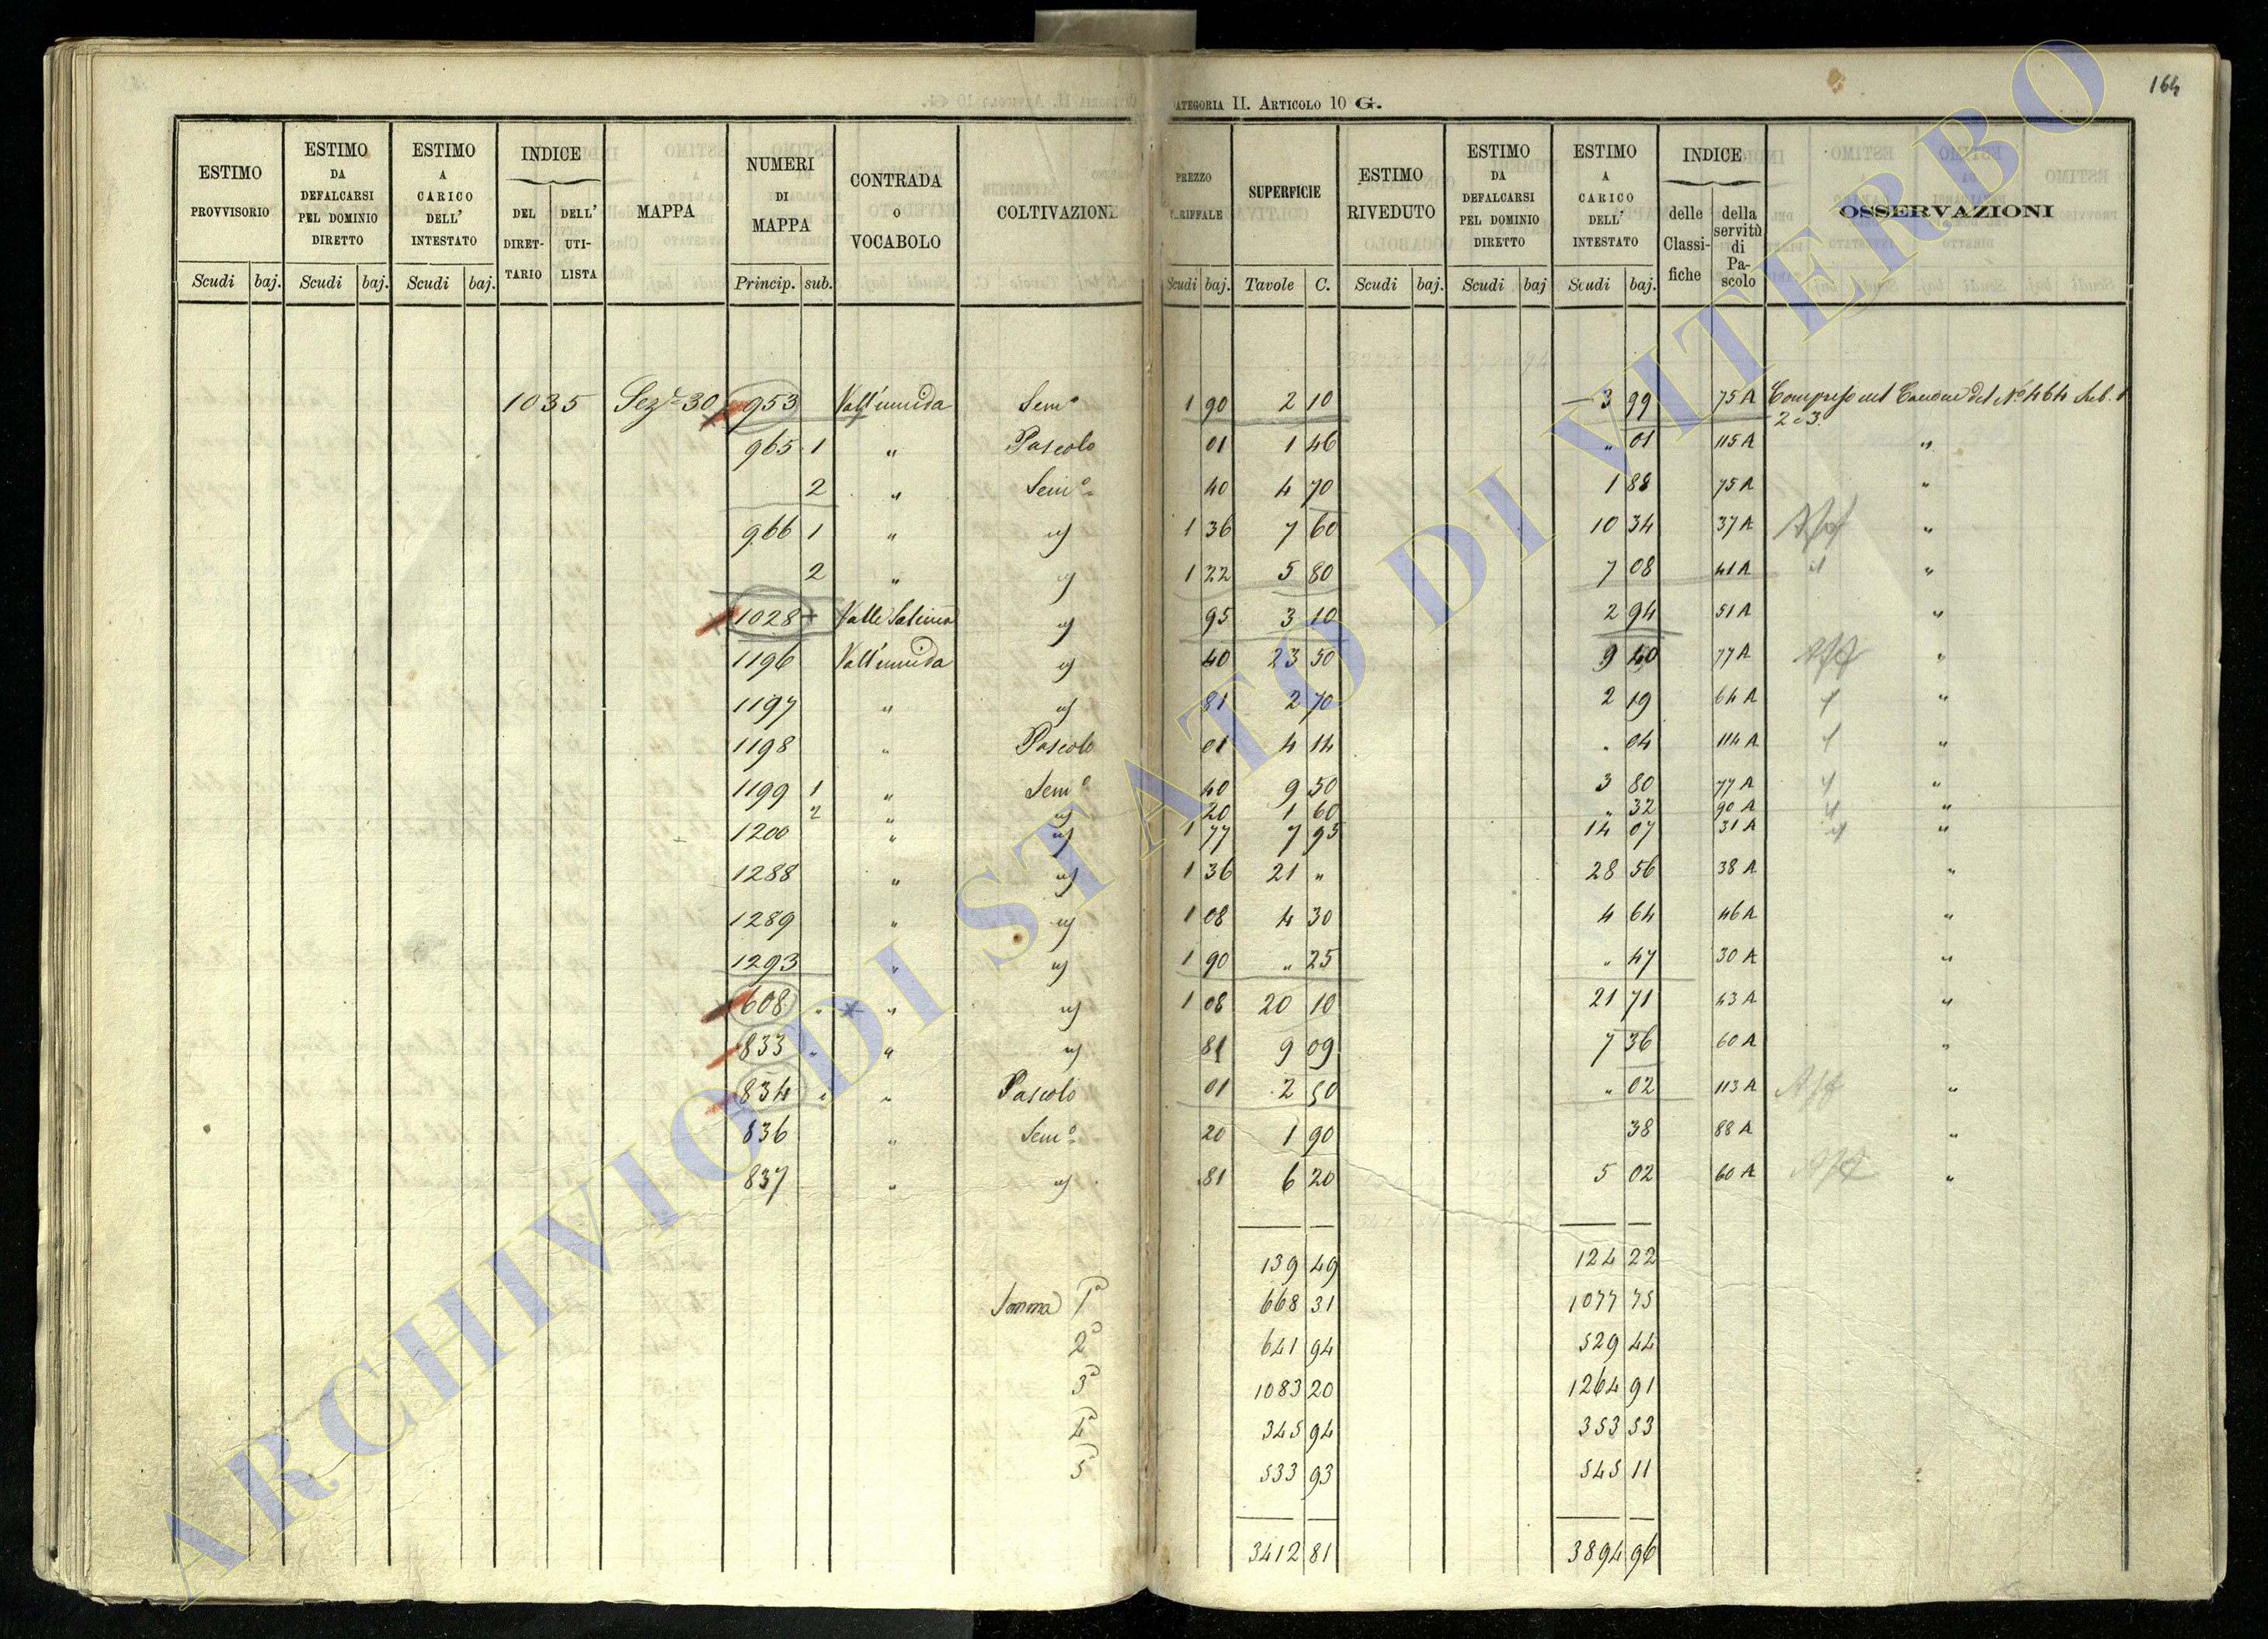 164
CATEGORIA II. ARTICOLO 10 G.
ESTIMO PROVVISORIO | ESTIMO DA DEFALCARSI PEL DOMINIO DIRETTO | ESTIMO A CARICO DELL' INTESTATO | INDICE DEL DIRETTARIO | DELL' UTILISTA | MAPPA | NUMERI DI MAPPA | CONTRADA O VOCABOLO | COLTIVAZIONE | PREZZO TARIFFALE | SUPERFICIE | ESTIMO RIVEDUTO | ESTIMO DA DEFALCARSI PEL DOMINIO DIRETTO | ESTIMO A CARICO DELL' INTESTATO | INDICE delle Classifiche | della servitù di Pascolo | OSSERVAZIONI
Scudi baj. Scudi baj. Scudi baj. Princip. sub. Scudi baj. Tavole C. Scudi baj. Scudi baj Scudi baj.
1035 Sez.e 30 953 Vall'umida Sem.o 1 90 2 10 3 99 75 A Compreso nel Canone del N.o 464 Sub. 1
2 e 3.
965 1 " Pascolo 01 1 46 " 01 115 A "
2 " Sem.o 40 4 70 1 88 75 A "
966 1 " " 1 36 7 60 10 34 37 A "
2 " " 1 22 5 80 7 08 41 A "
1028 Valle " 95 3 10 2 94 51 A "
1196 Vall'umida " 40 23 50 9 40 77 A "
1197 " " 81 2 70 2 19 64 A "
1198 " Pascolo 01 4 14 " 04 114 A "
1199 1 " Sem.o 40 9 50 3 80 77 A "
2 " " 20 1 60 " 32 90 A "
1200 " " 1 77 7 95 14 07 31 A "
1288 " " 1 36 21 " 28 56 38 A "
1289 " " 1 08 4 30 4 64 46 A "
1293 " " 1 90 " 25 " 47 30 A "
608 " " " 1 08 20 10 21 71 43 A "
833 " " " 81 9 09 7 36 60 A "
834 " " Pascolo 01 2 50 " 02 113 A "
836 " Sem.o 20 1 90 38 88 A "
837 " " 81 6 20 5 02 60 A "
139 49 124 22
Somma 1a 668 31 1077 75
2a 641 94 529 44
3a 1083 20 1264 91
4a 345 94 353 53
5a 533 93 545 11
3412 81 3894 96
ARCHIVIO DI STATO DI VITERBO